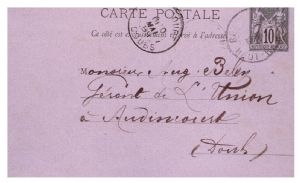 CARTE POSTALE
Ce côté est exclusivement réservé à l'adresse.
10
Monsieur Aug.
Gérant de L'Union
à Audincourt
(Doubs)